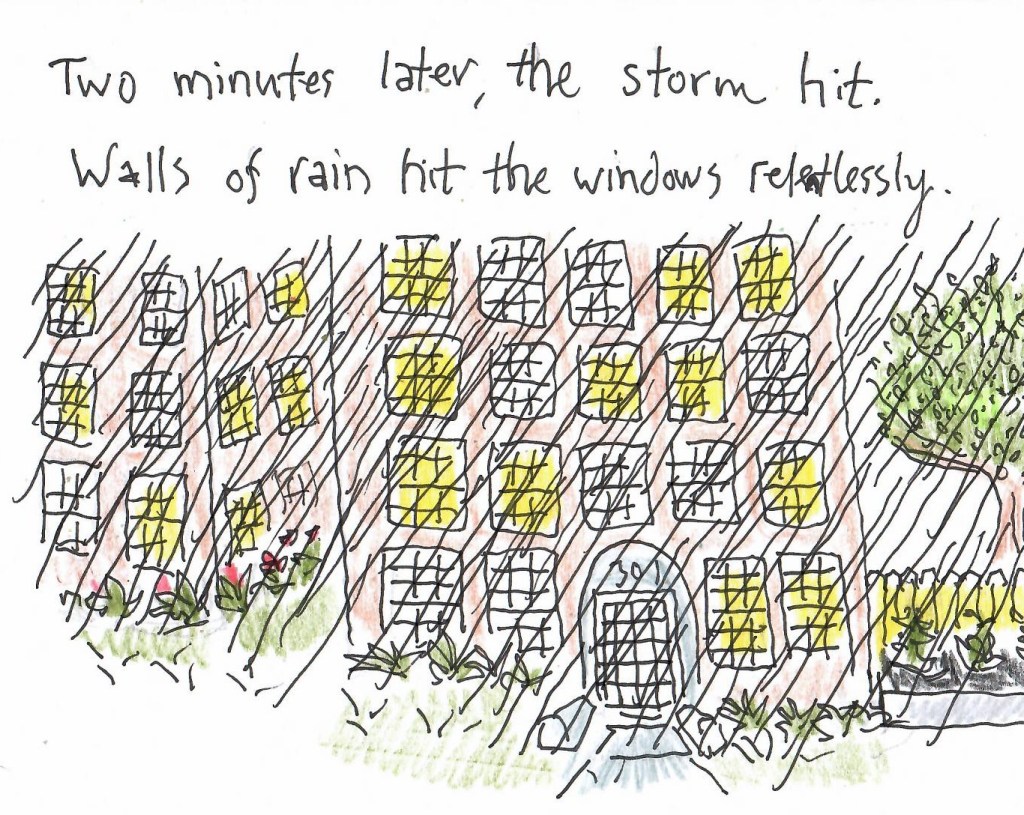 Two minutes later, the storm hit.
Walls of rain hit the windows relentlessly.
30